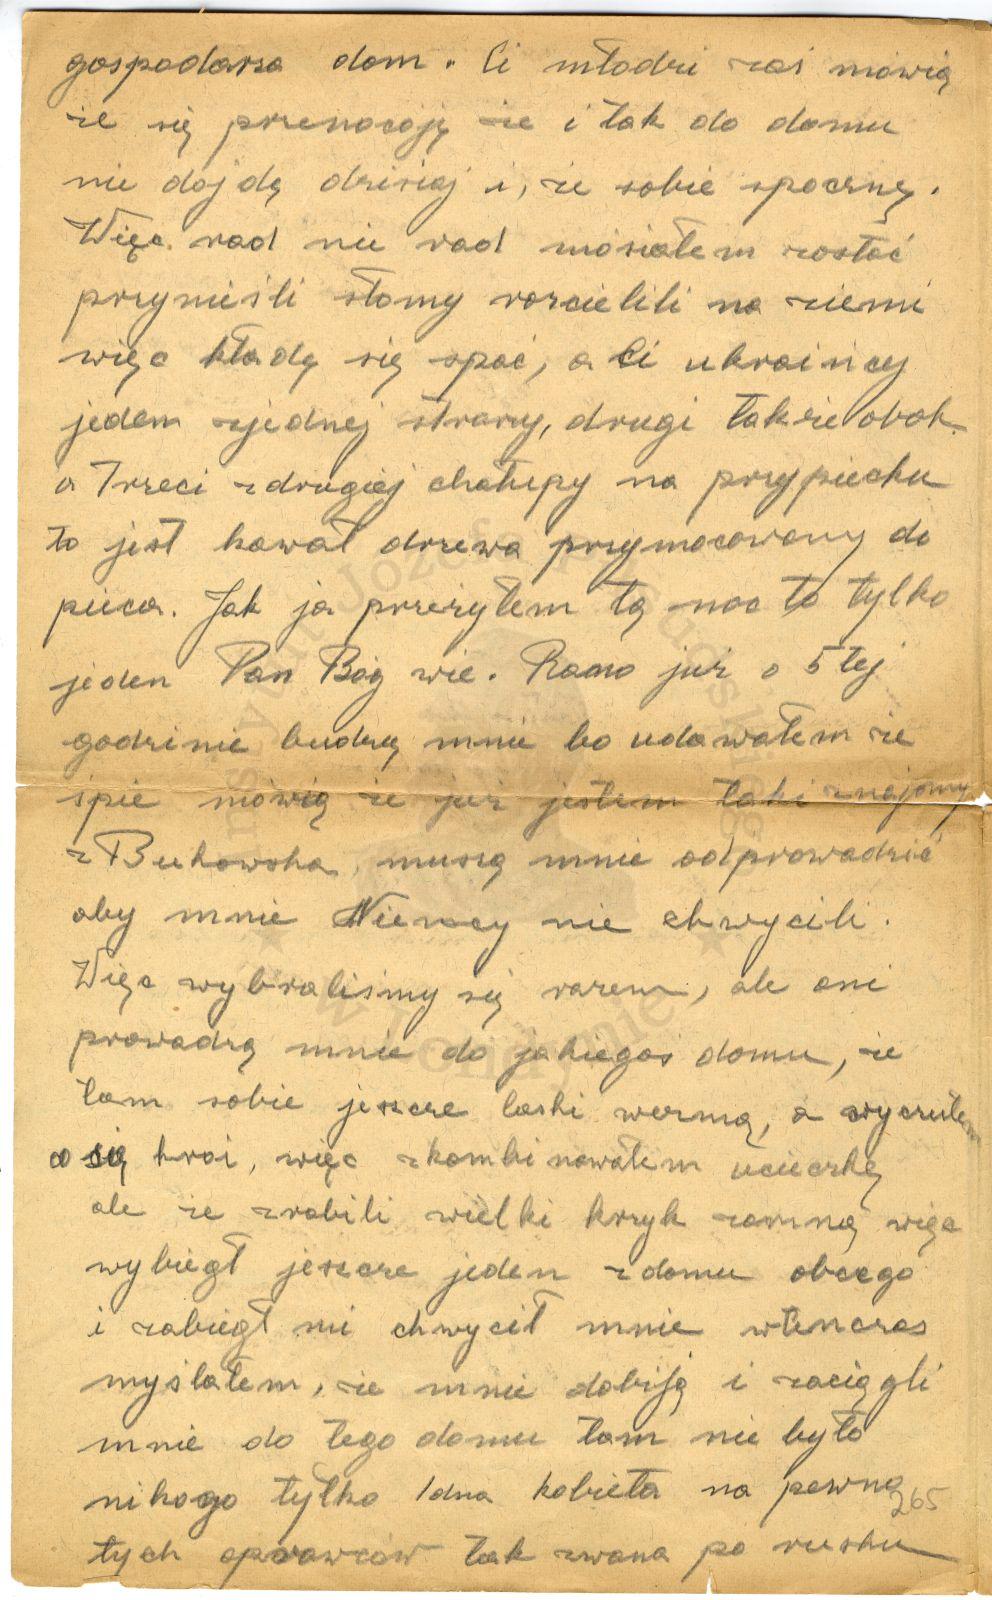 gospodarza dom. Ci młodzi zaś mówią
że się przenocoję że i tak do domu
nie dojdę dzisiaj i, że sobie spocznę.
Więc rad nie rad mósiałem zostać
przynieśli słomy rozcielili na ziemi
więc kładę się spać, a Ci ukraińcy
jeden zjednej strony, drugi także obok.
a Trzeci zdrugiej chałupy na przypiecku
to jest kawał drzewa przymocowany do
pieca. Jak ja przeżyłem tą noc to tylko
jeden Pan Bóg wie. Rano już o 5tej
godzinie budzą mnie bo udawałem że
śpie mówią że już jestem taki znajomy
z Bukowska, muszą mnie odprowadzić
aby mnie Niemcy nie chwycili.
Więc wybraliśmy się razem, ale oni
prowadzą mnie do jakiegoś domu, że
tam sobie jeszcze laski wezmą, a wyczułem
co się kroi, więc zkombinowałem ucieczkę
ale że zrobili wielki krzyk zamną więc
wybiegł jeszcze jeden zdomu obcego
i zabiegł mi chwycił mnie wtenczas
myślałem, że mnie dobiją i zaciągli
mnie do tego domu tam nie było
nikogo tylko 1dna kobieta na pewno
265
tych oprawców tak zwana po rusku